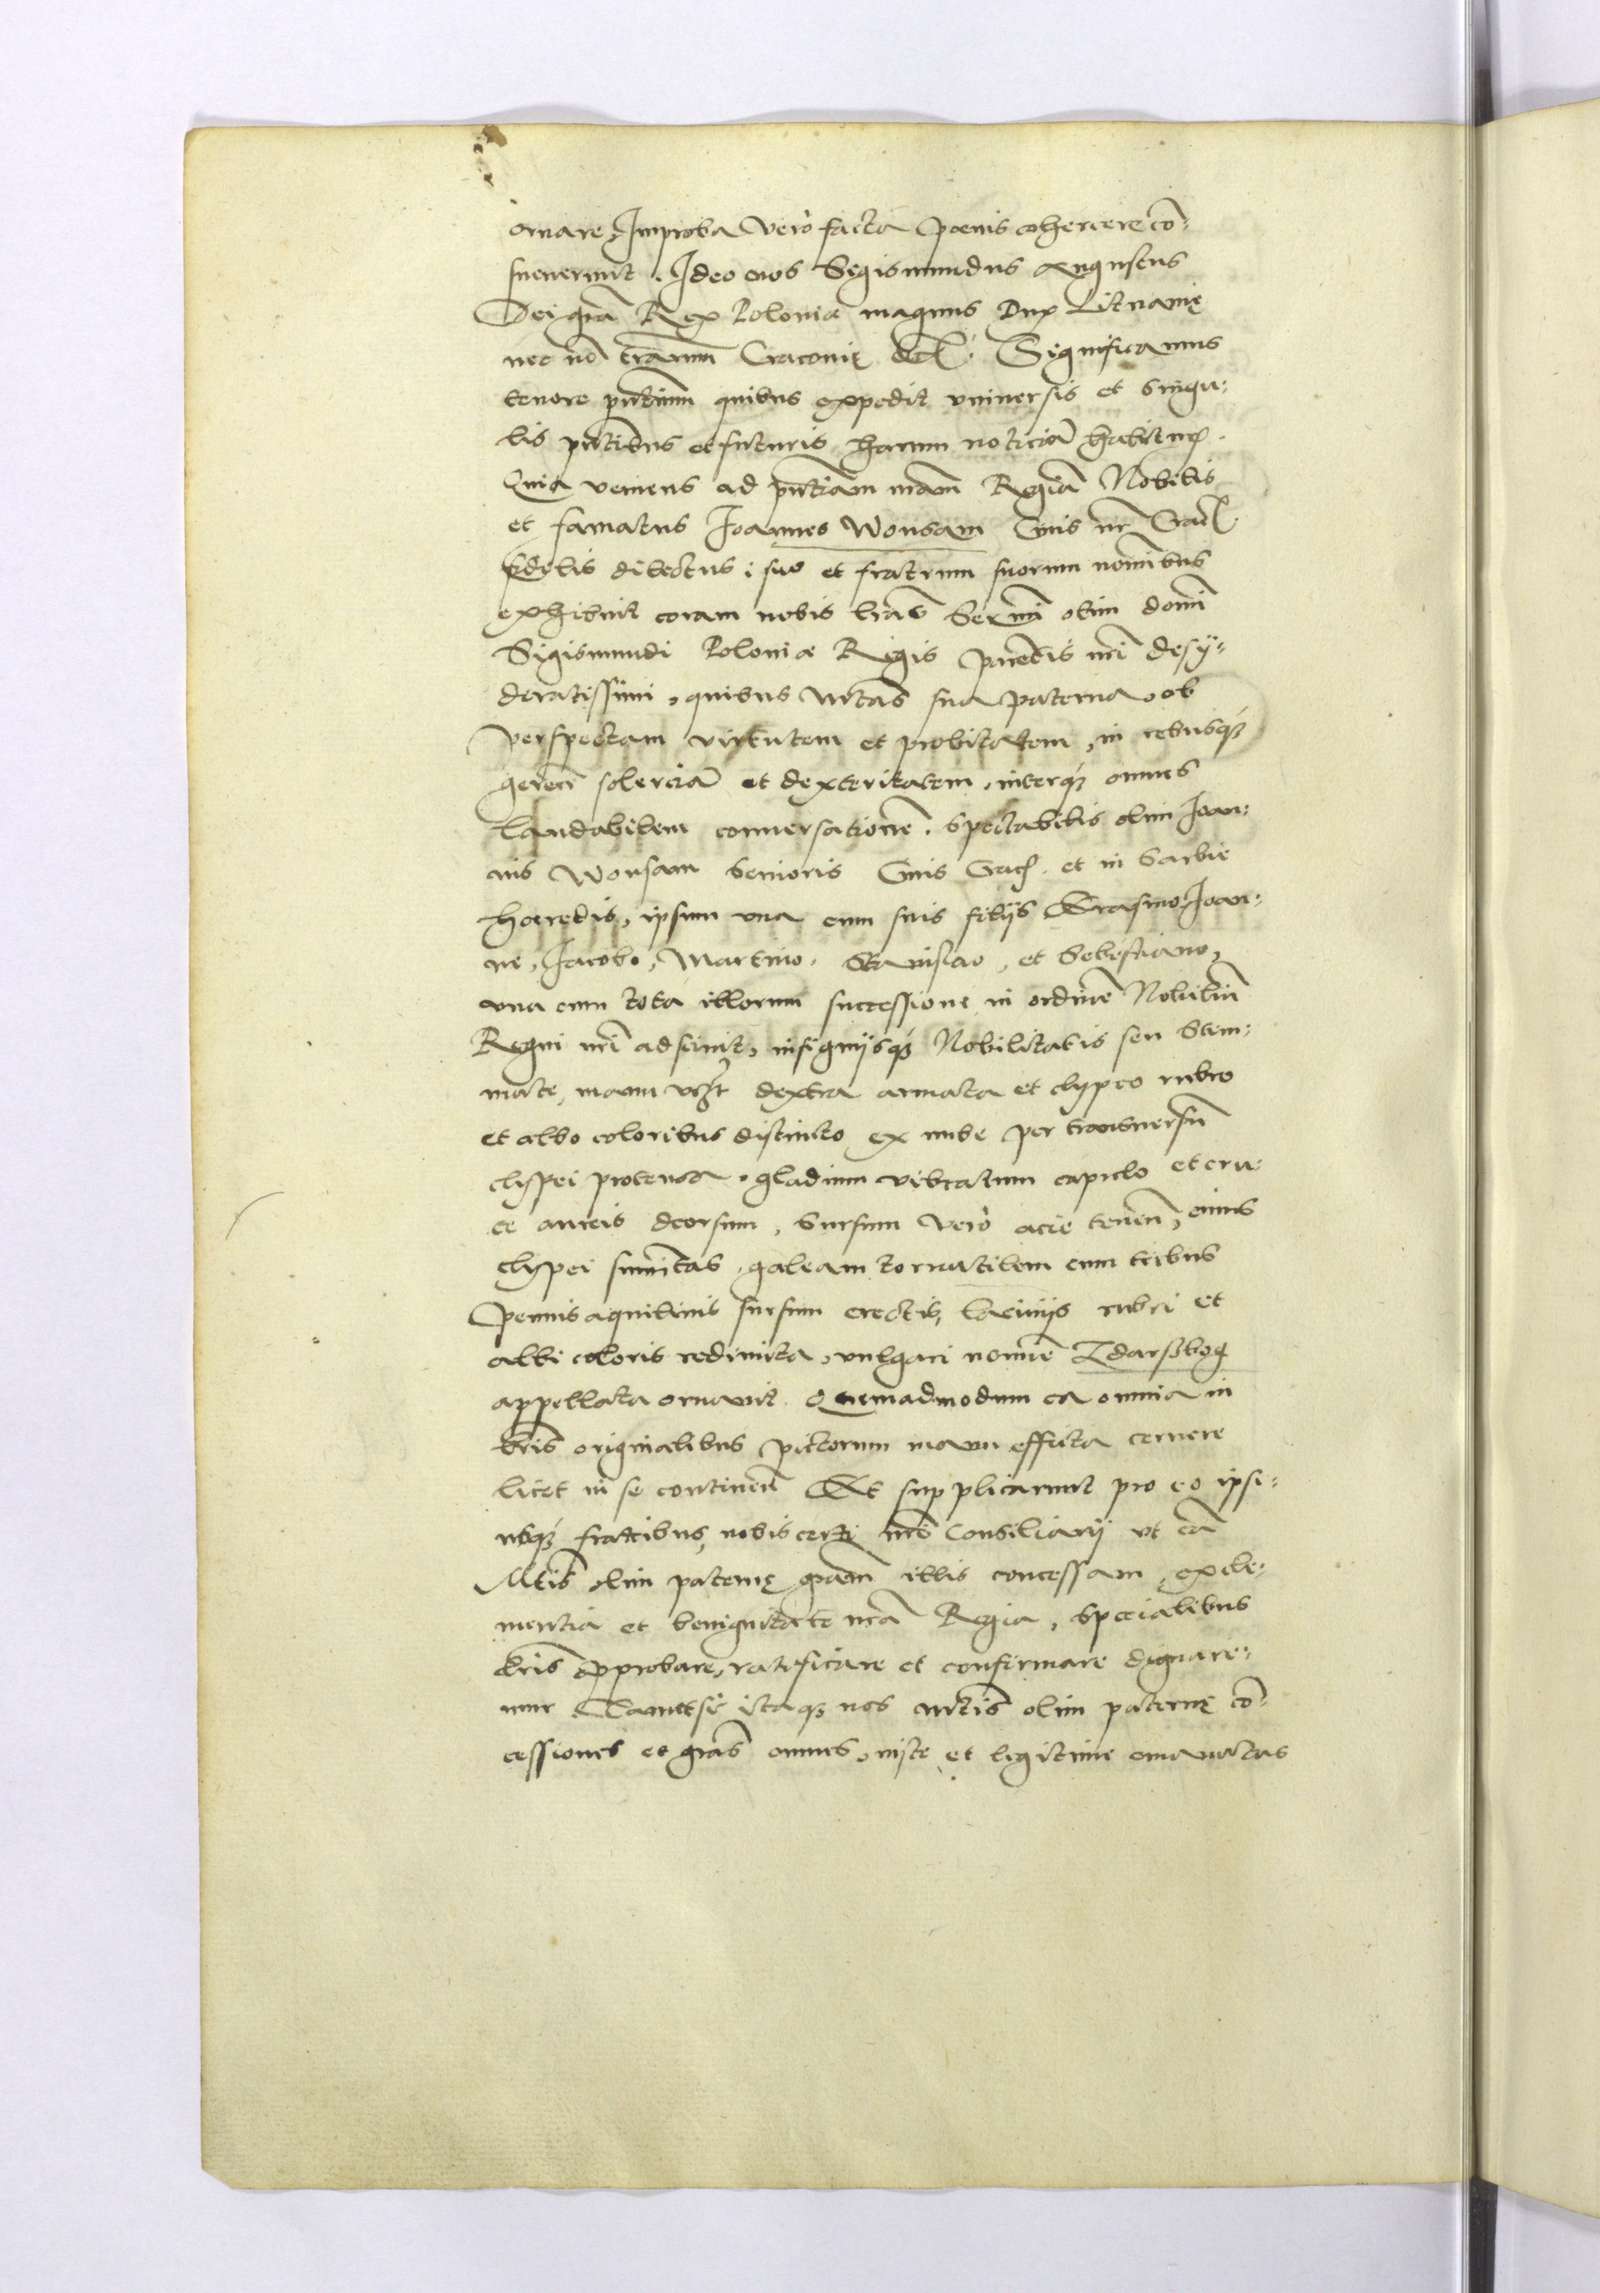 ornare, Improba verò facta poenis cohercere cõ-
sueuerunt. Ideo nos Sigismundus Augustus
Dei grã Rex Poloniæ magnus Dux Lituanię
nec nõ trarum Cracouię etc. Significamus
tenore pñtium quibus expedit vniuersis et singu-
lis pñtibus et futuris harum noticiã habitur.
Quia veniens ad pñtiam nrãm Regiã Nobilis
et famatus Joannes Wonsam Ciuis nr̃ Crac.
fidelis dilectus, suo et fratrum suorum nomĩbus
exhibuit coram nobis lrãs Sermi olim domĩ
Sigismundi Poloniæ Regis parẽtis nrĩ desy-
deratissimi, quibus Mtãs sua paterna, ob
perspectam virtutem et probitatem, in rebusq́
gerẽd solerciã et dexteritatem, interq́ omnes
laudabilem conuersationẽ, Spectabilis olim Joan-
nis Wonsam Senioris Ciuis Crac. et in Sarbie
hæredis, ipsum vna cum suis filijs Erasmo, Joan-
ne, Jacobo, Martino, Stanislao, et Sebestiano,
vna cum tota illorum successione in ordinẽ Nobiliũ
Regni nrĩ adsciuit, insignijsq́ Nobilitatis seu Stem-
mate, manu vczt dextra armata et clypeo rubro
et albo coloribus distincto ex nube per transuersũ
clypei protensa, gladium vibratum capulo et cru-
ce aureis deorsum, Sursum verò acie tenẽn, cuius
clypei sum̃itas, galeam tornatilem cum tribus
pennis aquilinis sursum erectis, lacinijs rubri et
albi coloris redimita, vulgari nomĩe Zdarzbog
appellata ornauit. Quemadmodum ea omnia in
lrĩs originalibus pictorum manu efficta cernere
licet in se continẽn Et supplicarunt pro eo ipsi-
usq́ fratribus, nobis certi nrĩ Consiliarij vt eã
Mtis olim paternę grãm illis concessam, ex cle-
mentia et benignitate nrã Regia, specialibus
lrĩs approbare, ratificare et confirmare dignare-
mur. Tametsi itaq́ nos Mtis olim paternę cõ-
cessiones et grãs omnes, iuste et legitime emanatas